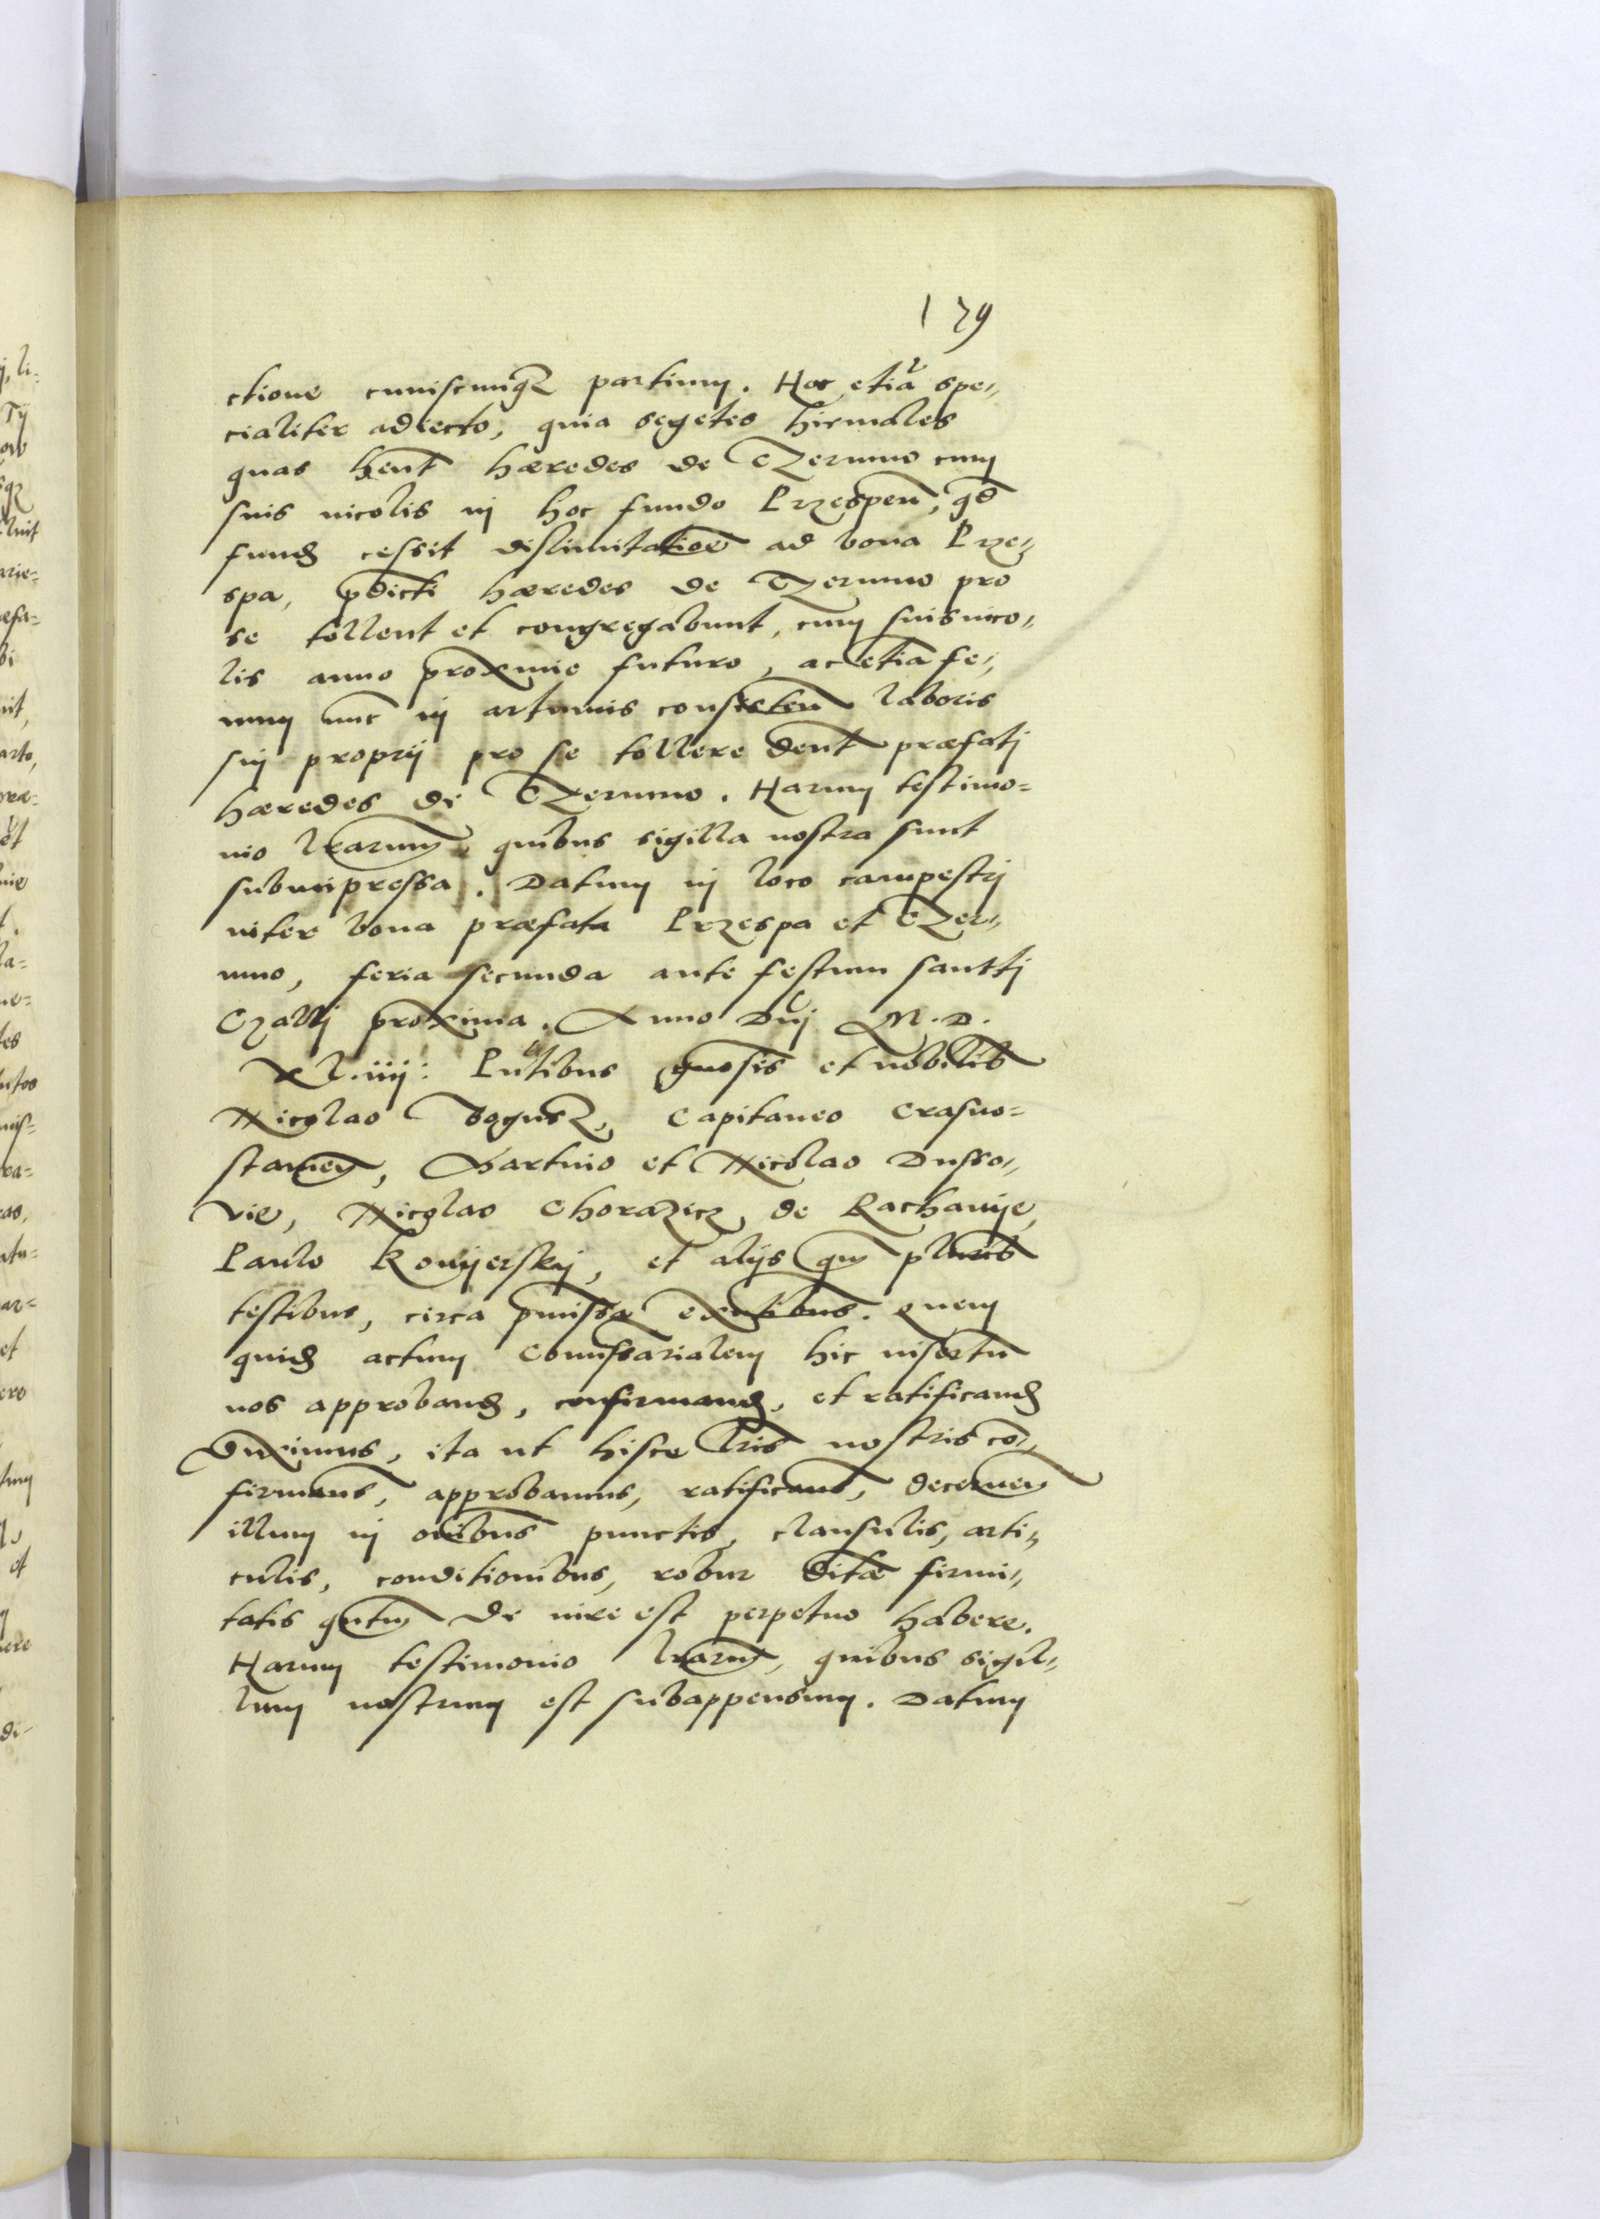 179
ctione cuiuscunqz partium. Hoc etiã spe-
cialiter adiecto, quia segetes hiemales
quas hent hæredes de Czerunno cum
suis incolis in hoc fundo Przespen, qd
fund cessit dislimitatioe ad bona Prze-
spa, pdicti hæredes de Czerunno pro
se tollent et congregabunt, cum suis inco-
lis anno proxime futuro, ac etia fe-
num nuc in artumis consisten laboris
sui proprij pro se tollere debent præfati
hæredes de Czerunno. Harum testimo=
nio lrarum, quibus sigilla nostra sunt
subimpressa. Datum in loco campestri
inter bona præfata Przespa et Czer-
unno, feria secunda ante festum santti
Galli proxima. Anno Dni M.D.
XLiiij: Pntibus gnosis et nobilib
Nicolao Bogusz, Capitaneo Crasno=
stamen, Martino et Nicolao Dusso-
vie, Nicolao Chorazicz de Rachanije,
Paulo Konyerskij, et alijs qm plurib
testibus, circa pmissa exntibus. Quem
quid actum Comissarialem hic insertu
nos approband, confirmand, et ratificand
duximus, ita ut hisce lris nostris co-
firmams, approbamus, ratificams, decernen
illum in oibus punctis, clausulis, arti-
culis, conditionibus, robur debitæ firmi-
tatis qntm de iure est perpetuo habere.
Harum testimonio lrarum, quibus sigil-
lum nostrum est subappensum. Datum